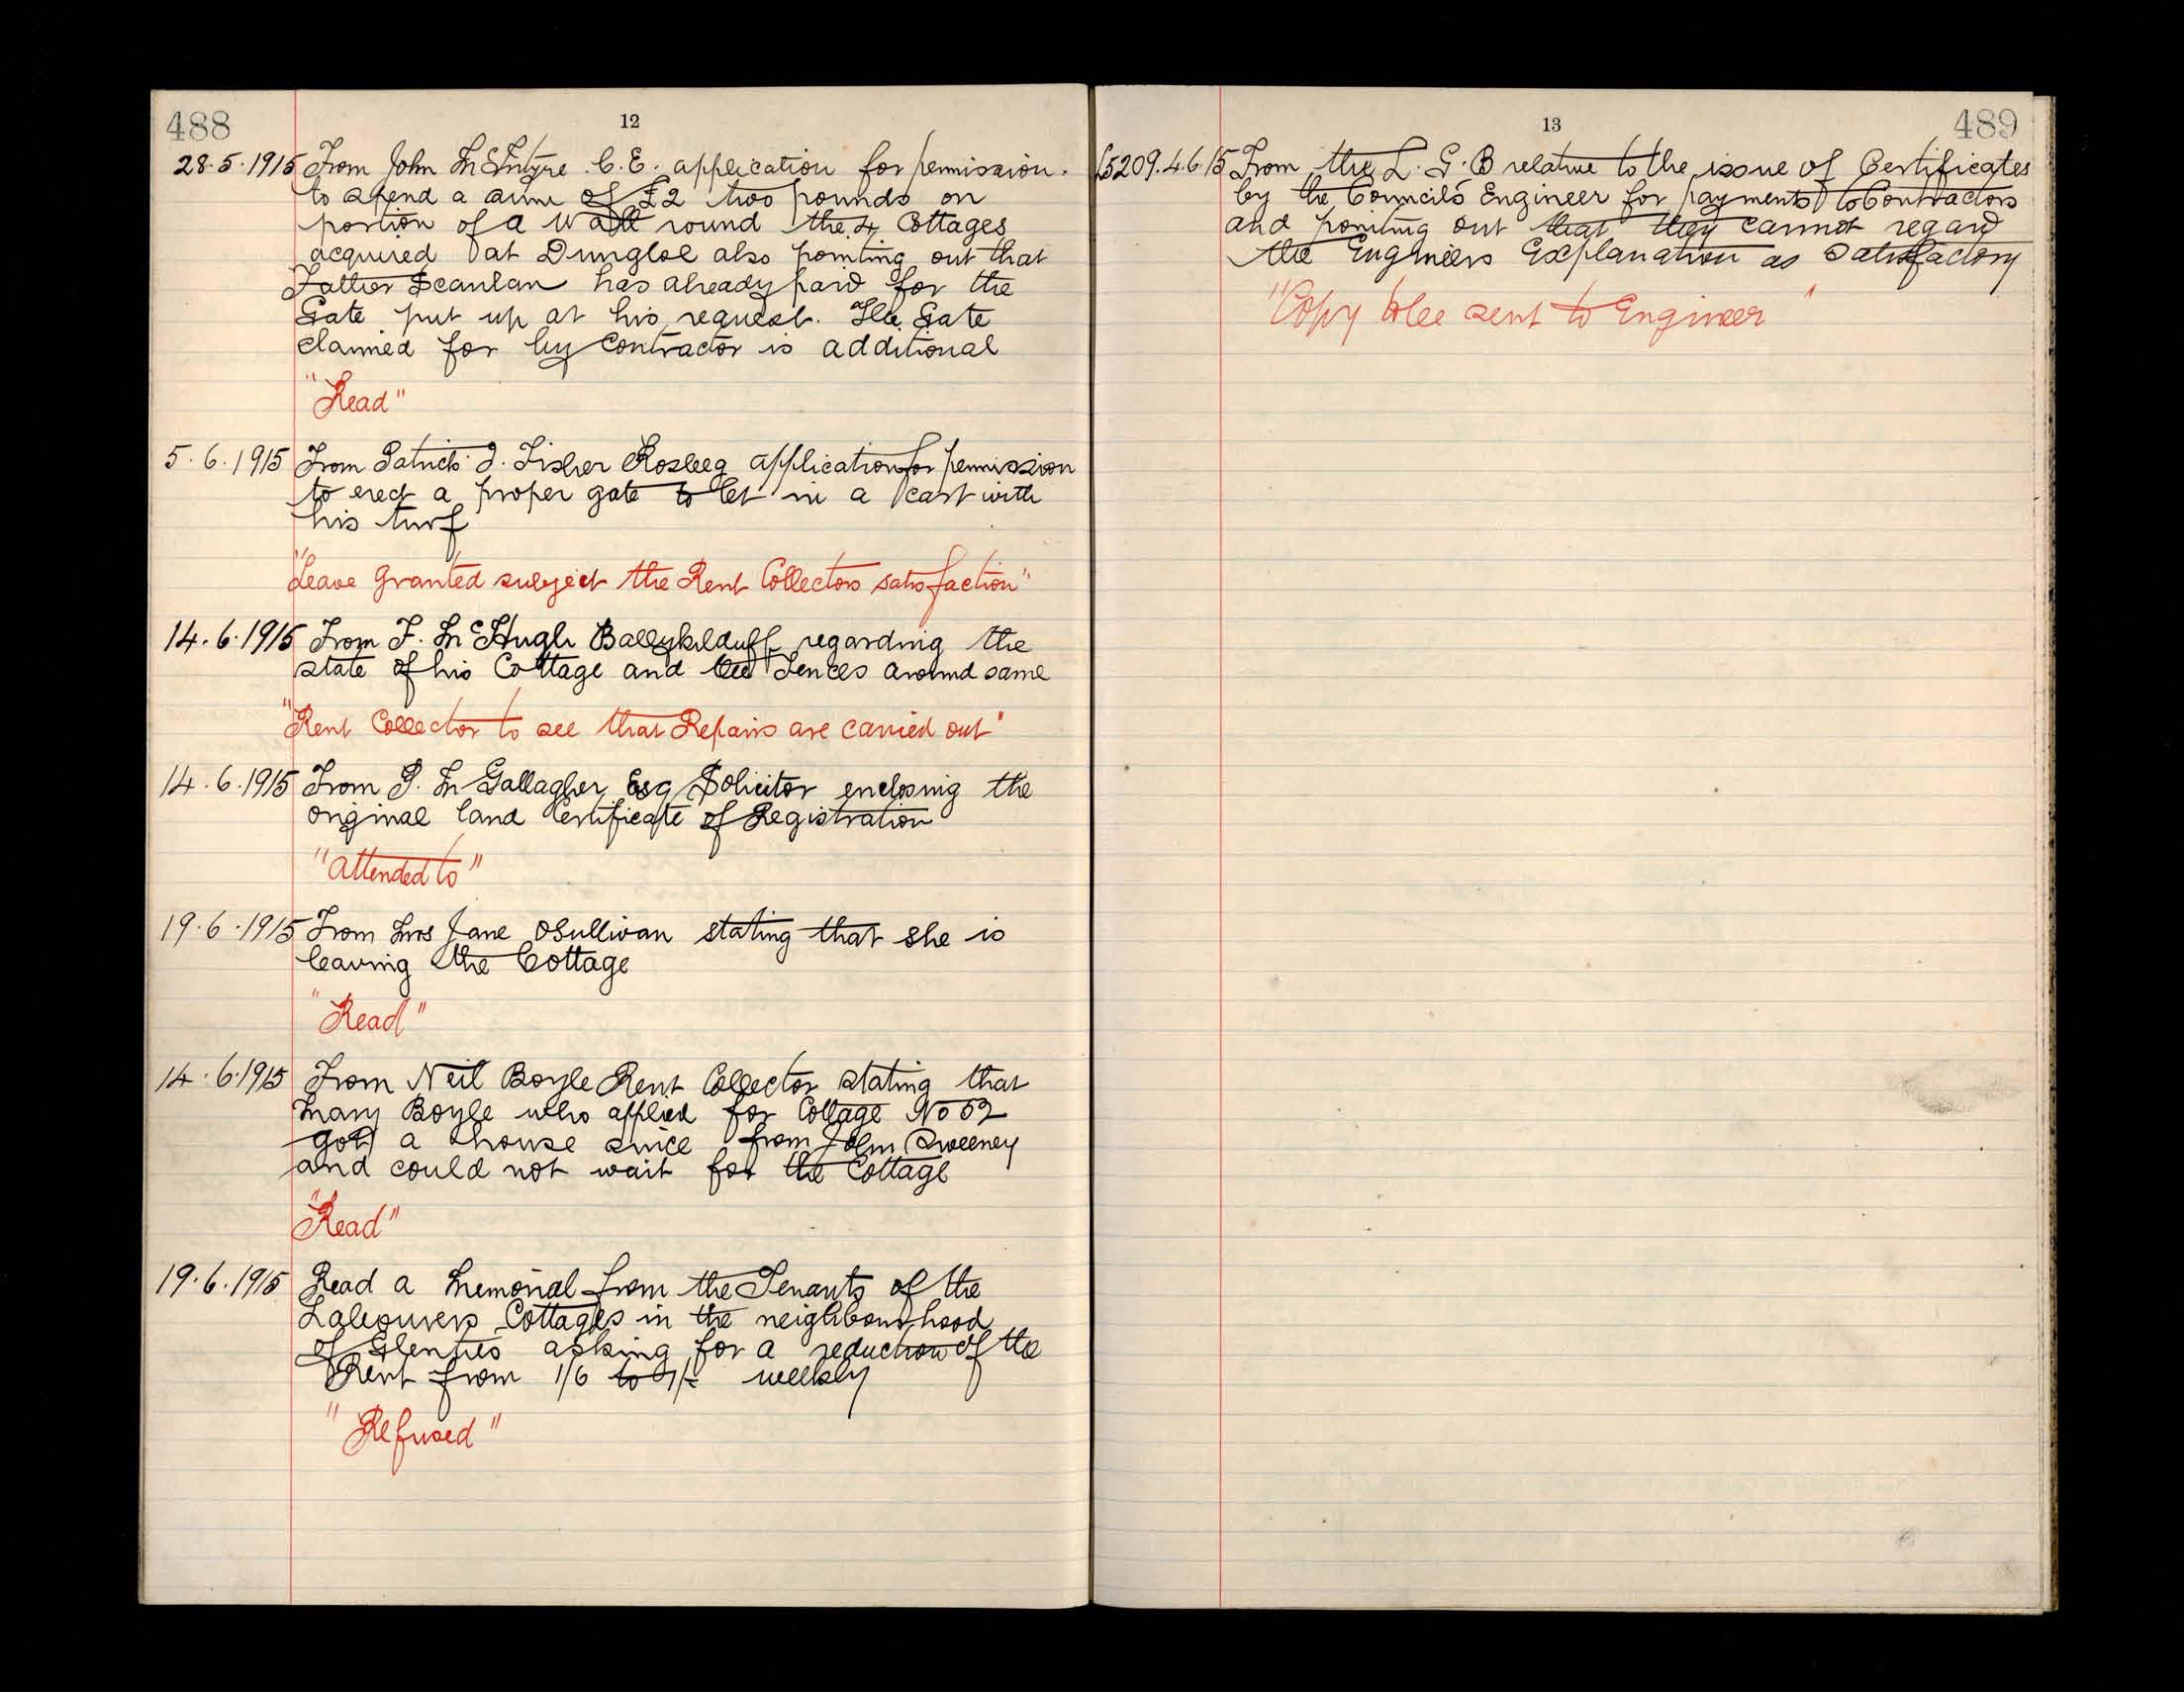 488
12
28.5.1915 From John McIntyre C.E. application for permission
to spend a sum of £2 two pounds on
portion of a Wall round the 4 Cottages
acquired at Dungloe also pointing out that
Father Scanlan has already paid for the
Gate put up at his request. The Gate
claimed for by Contractor is additional
"Read"
5.6.1915 From Patrick J. Fisher Rosbeg application for permission
to erect a proper gate to let in a cart with
his turf
"Leave Granted subject the Rent Collectors satisfaction"
14.6.1915 From F. McHugh Ballykilduff regarding the
state of his Cottage and the Fences around same
"Rent Collector to see that Repairs are carried out"
14.6.1915 From P. M Gallagher Esq Solicitor enclosing the
original land Certificate of Registration
"Attended to"
19.6.1915 From Mrs Jane OSullivan stating that she is
leaving the Cottage
"Read"
14.6.1915 From Neil Boyle Rent Collector stating that
Mary Boyle who applied for Cottage No 52
got a house since from John Sweeney
and could not wait for the Cottage
"Read"
19.6.1915 Read a Memorial from the Tenants of the
Labourers Cottages in the neighbourhood
of Glenties asking for a reduction of the
Rent from 1/6 to 1/- weekly
"Refused"
489
13
L5209.4.6.15 From the L.G.B relative to the issue of Certificates
by the Council's Engineer for payments to Contractors
and pointing out that they cannot regard
the Engineers Explanation as Satisfactory
"Copy to be sent to Engineer"